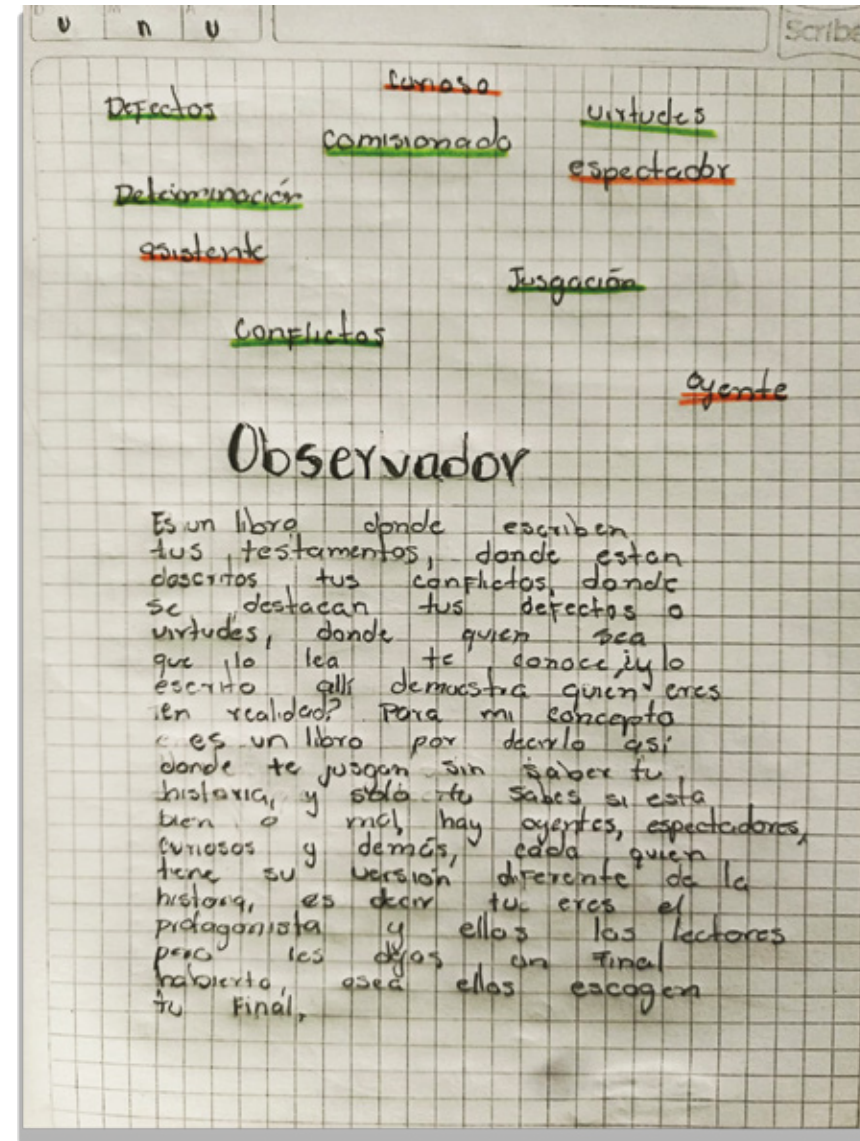 D M A
Scribe
curioso
Defectos
virtudes
comisionado
espectador
Determinación
asistente
Jusgación
Conflictos
oyente
Observador
Es un libro donde escriben
tus testamentos, donde estan
descritos tus conflictos, donde
se destacan tus defectos o
virtudes, donde quien sea
que lo lea te conoce, ¿y lo
escrito allí demuestra quien eres
en realidad? Para mi concepto
es un libro por decirlo así
donde te jusgan sin saber tu
historia, y solo tu sabes si esta
bien o mal, hay oyentes, espectadores,
curiosos y demás, cada quien
tiene su versión diferente de la
historia, es decir tu eres el
protagonista y ellos los lectores
pero les dejas un final
habierto, osea ellos escogen
tu Final,